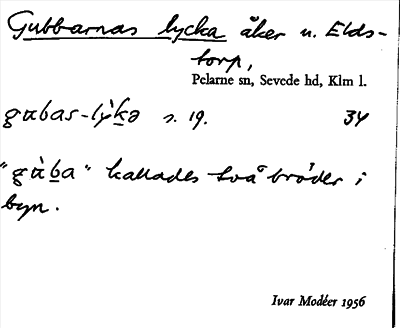 Gubbarnas lycka åker u. Elds-
torp,
Pelarne sn, Sevede hd, Klm l.
gɑbas-lỳkə s. 19. 34
"gɑ̀ba" kallades två bröder i
byn.
Ivar Modéer 1956